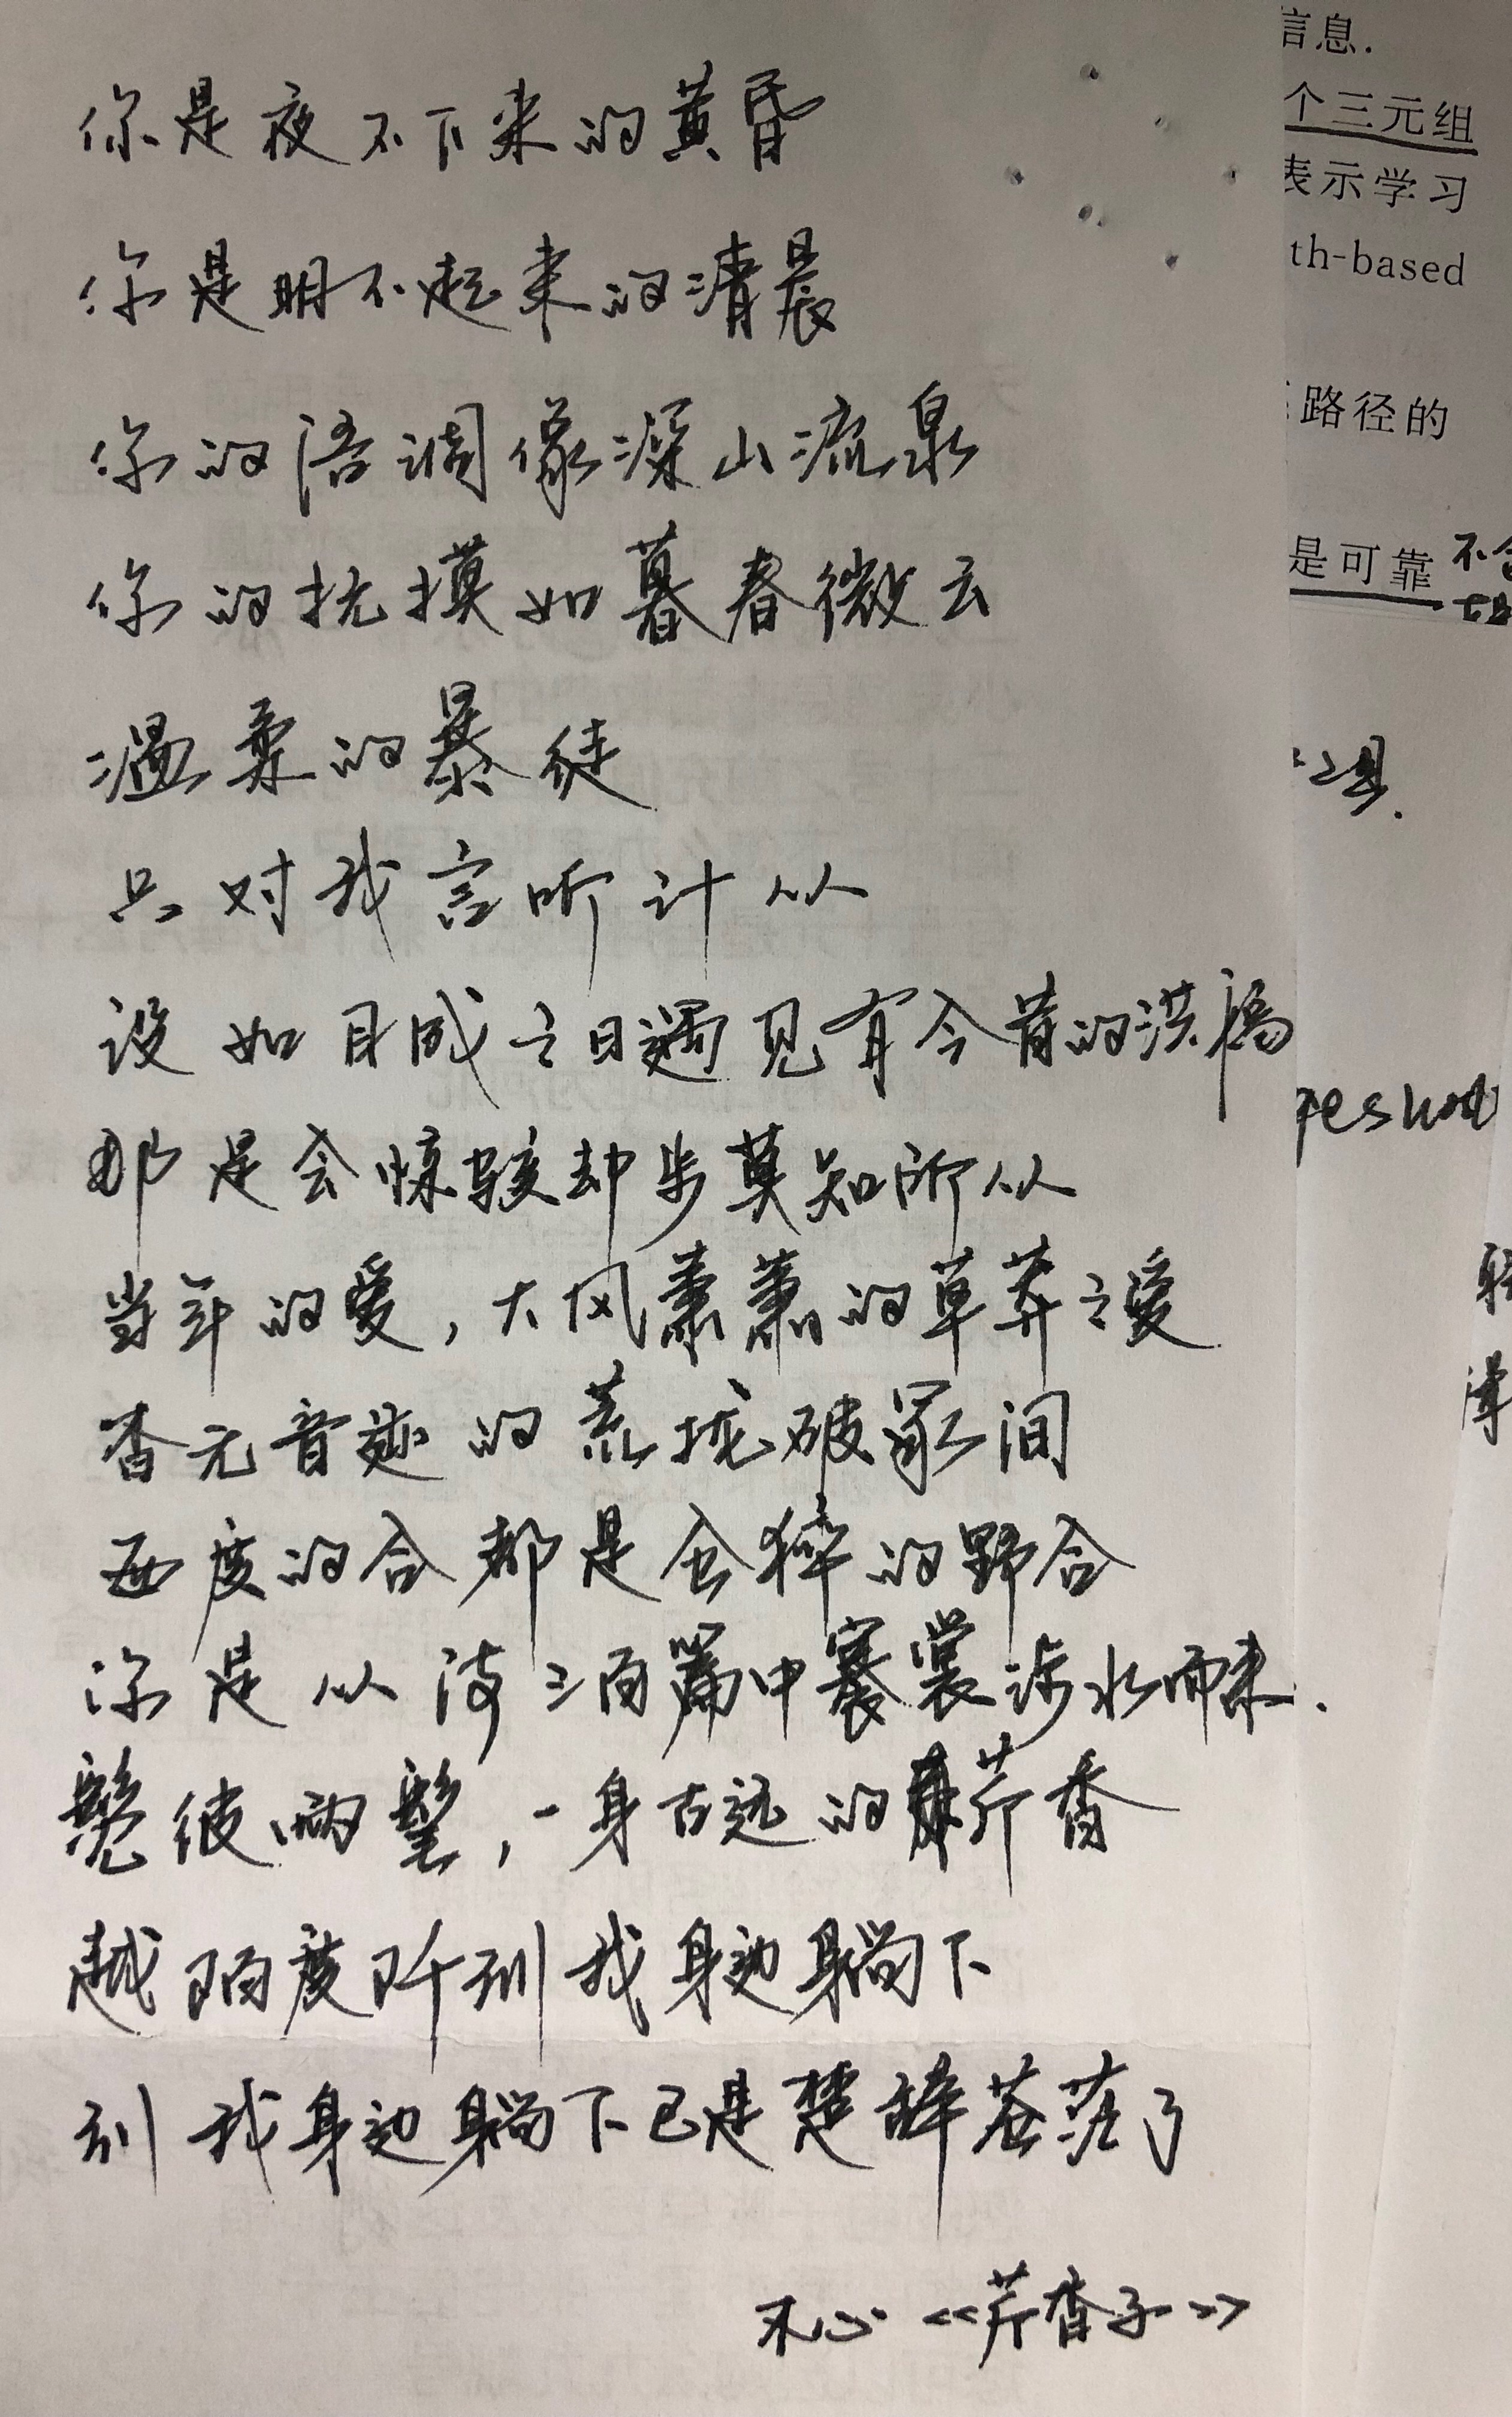 你是夜不下来的黄昏
你是明不起来的清晨
你的语调像深山流泉
你的抚摸如暮春微云
温柔的暴徒
只对我言听计从
设如目成之日遇见有今昔的洪福
那是会惊骇却步莫知所从
当年的爱,大风萧萧的草莽之爱
杳无音迹的荒垅破冢间
每度的合都是仓猝的野合
你是从诗三百篇中褰裳涉水而来.
髧彼两髦,一身古远的芹香
越陌度阡到我身边躺下
到我身边躺下已是楚辞苍茫了
木心 《芹香子》
信息.
个三元组
表示学习
th-based
路径的
是可靠 不